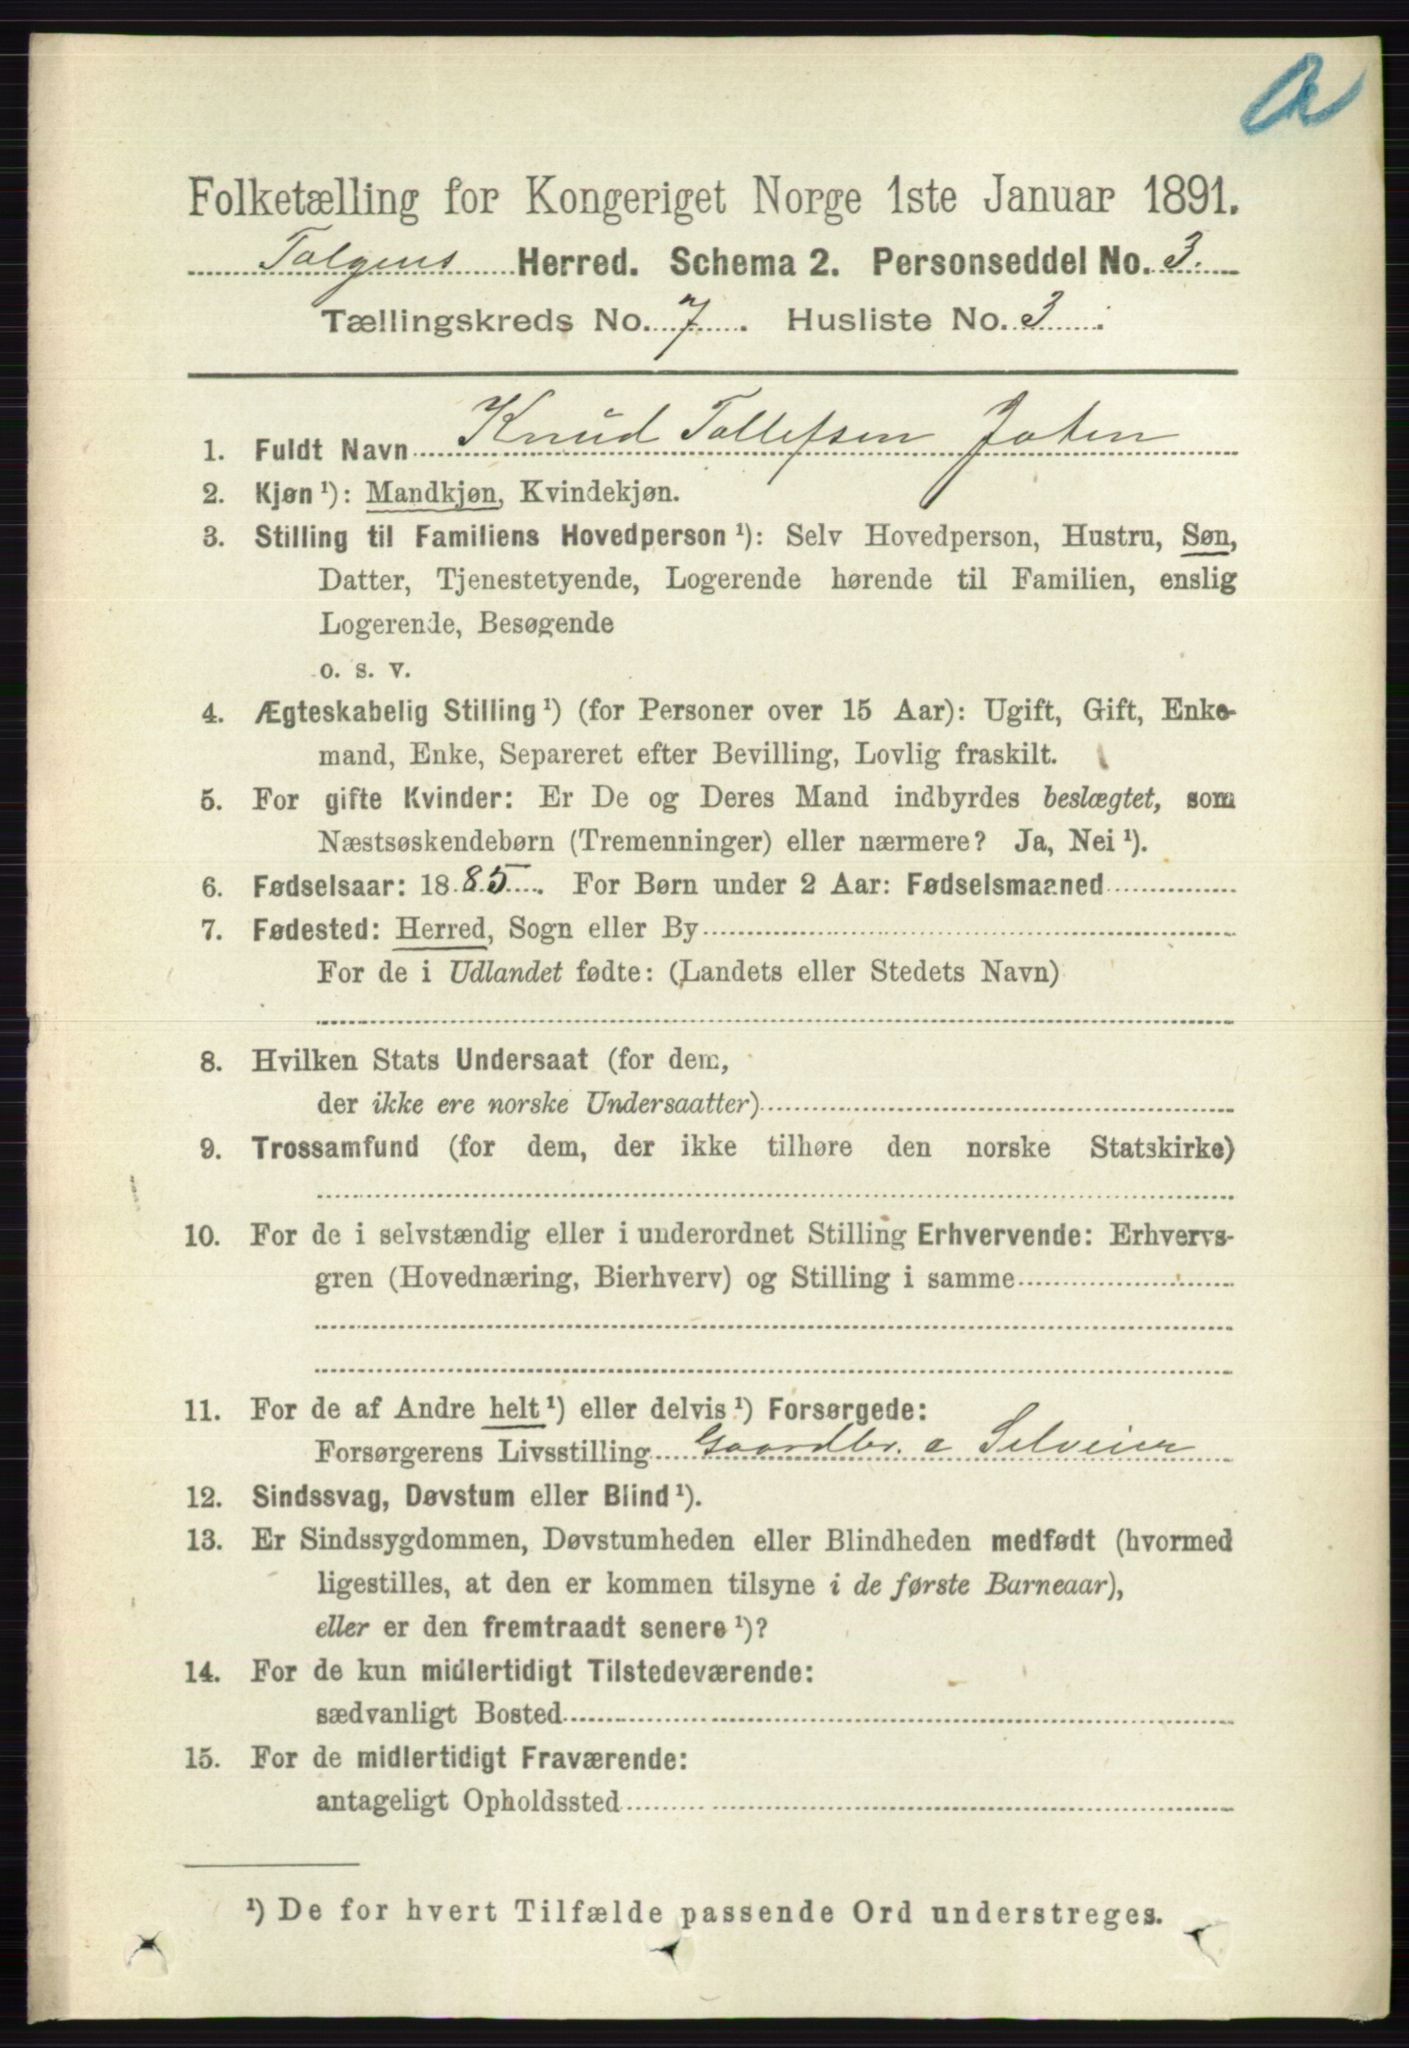 a
Folketælling for Kongeriget Norge 1ste Januar 1891.
Tolgens Herred. Schema 2. Personseddel No. 3.
Tællingskreds No. 7. Husliste No. 3.
1. Fuldt Navn Knud Tollefsen Joten
2. Kjøn ¹): Mandkjøn, Kvindekjøn.
3. Stilling til Familiens Hovedperson ¹): Selv Hovedperson, Hustru, Søn,
Datter, Tjenestetyende, Logerende hørende til Familien, enslig
Logerende, Besøgende
o. s. v.
4. Ægteskabelig Stilling ¹) (for Personer over 15 Aar): Ugift, Gift, Enke-
mand, Enke, Separeret efter Bevilling, Lovlig fraskilt.
5. For gifte Kvinder: Er De og Deres Mand indbyrdes beslægtet, som
Næstsøskendebørn (Tremenninger) eller nærmere? Ja, Nei ¹).
6. Fødselsaar: 1885. For Børn under 2 Aar: Fødselsmaaned
7. Fødested: Herred, Sogn eller By
For de i Udlandet fødte: (Landets eller Stedets Navn)
8. Hvilken Stats Undersaat (for dem,
der ikke ere norske Undersaatter)
9. Trossamfund (for dem, der ikke tilhøre den norske Statskirke)
10. For de i selvstændig eller i underordnet Stilling Erhvervende: Erhvervs-
gren (Hovednæring, Bierhverv) og Stilling i samme
11. For de af Andre helt ¹) eller delvis ¹) Forsørgede:
Forsørgerens Livsstilling Gaardbr. o Selveier
12. Sindssvag, Døvstum eller Blind ¹).
13. Er Sindssygdommen, Døvstumheden eller Blindheden medfødt (hvormed
ligestilles, at den er kommen tilsyne i de første Barneaar),
eller er den fremtraadt senere ¹)?
14. For de kun midlertidigt Tilstedeværende:
sædvanligt Bosted
15. For de midlertidigt Fraværende:
antageligt Opholdssted
¹) De for hvert Tilfælde passende Ord understreges.